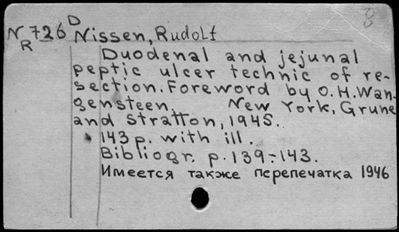 N 726 D Nissen, Rudolf
R
Duodenal and jejunal
peptic ulcer technic of re-
section. Foreword by O.H. Wan-
gensteen. New York, Grune
and Stratton, 1945.
143 p. with ill.
Bibliogr. p. 139-143.
Имеется также перепечатка 1946